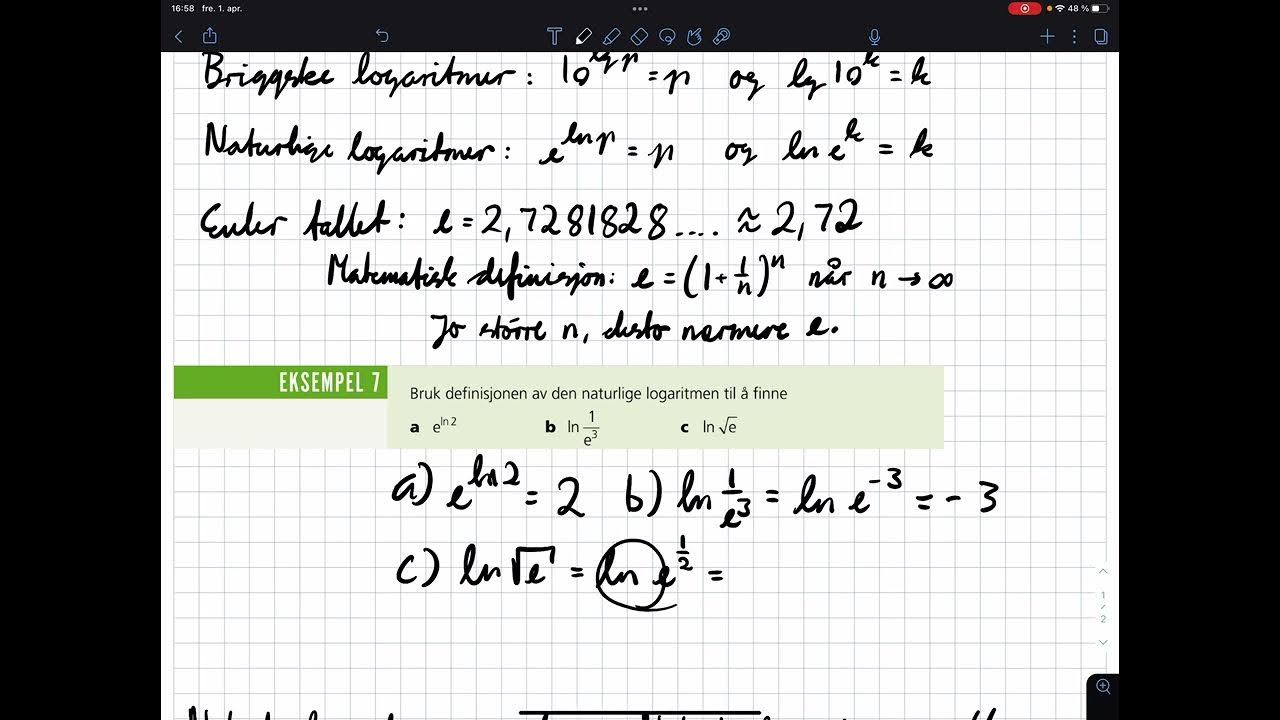 16:58 fre. 1. apr. 48 %
Briggske logaritmer: 10^lg p = p og lg 10^k = k
Naturlige logaritmer: e^ln p = p og ln e^k = k
Euler tallet: e = 2,7281828.... ≈ 2,72
Matematisk definisjon: e = (1 + 1/n)^n når n → ∞
Jo større n, desto nærmere e.
EKSEMPEL 7
Bruk definisjonen av den naturlige logaritmen til å finne
a e^ln 2 b ln 1/e^3 c ln √e
a) e^ln 2 = 2 b) ln 1/e^3 = ln e^-3 = -3
c) ln √e = ln e^1/2 =
1
/
2